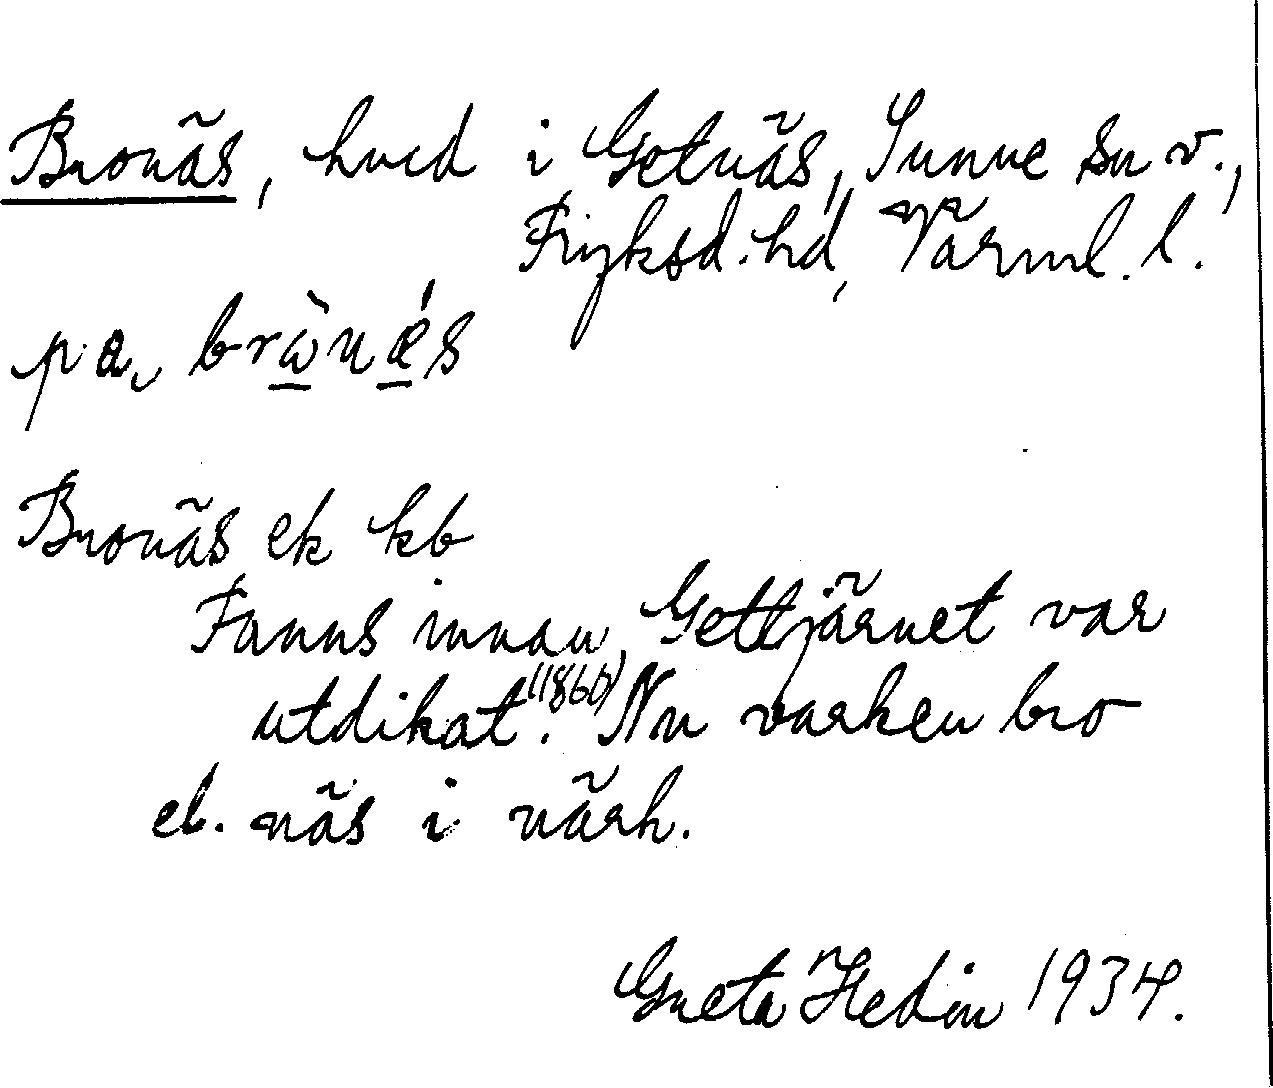 Bronäs, hvcd i Getnäs, Sunne sn v.,
Fryksd. hd, Värml. l.
pa, brɷ̀nǽs
Bronäs ek kb
Fanns innan Gettjärnet var
utdikat. (1860) Nu varken bro
el. näs i närh.
Greta Hedin 1934.